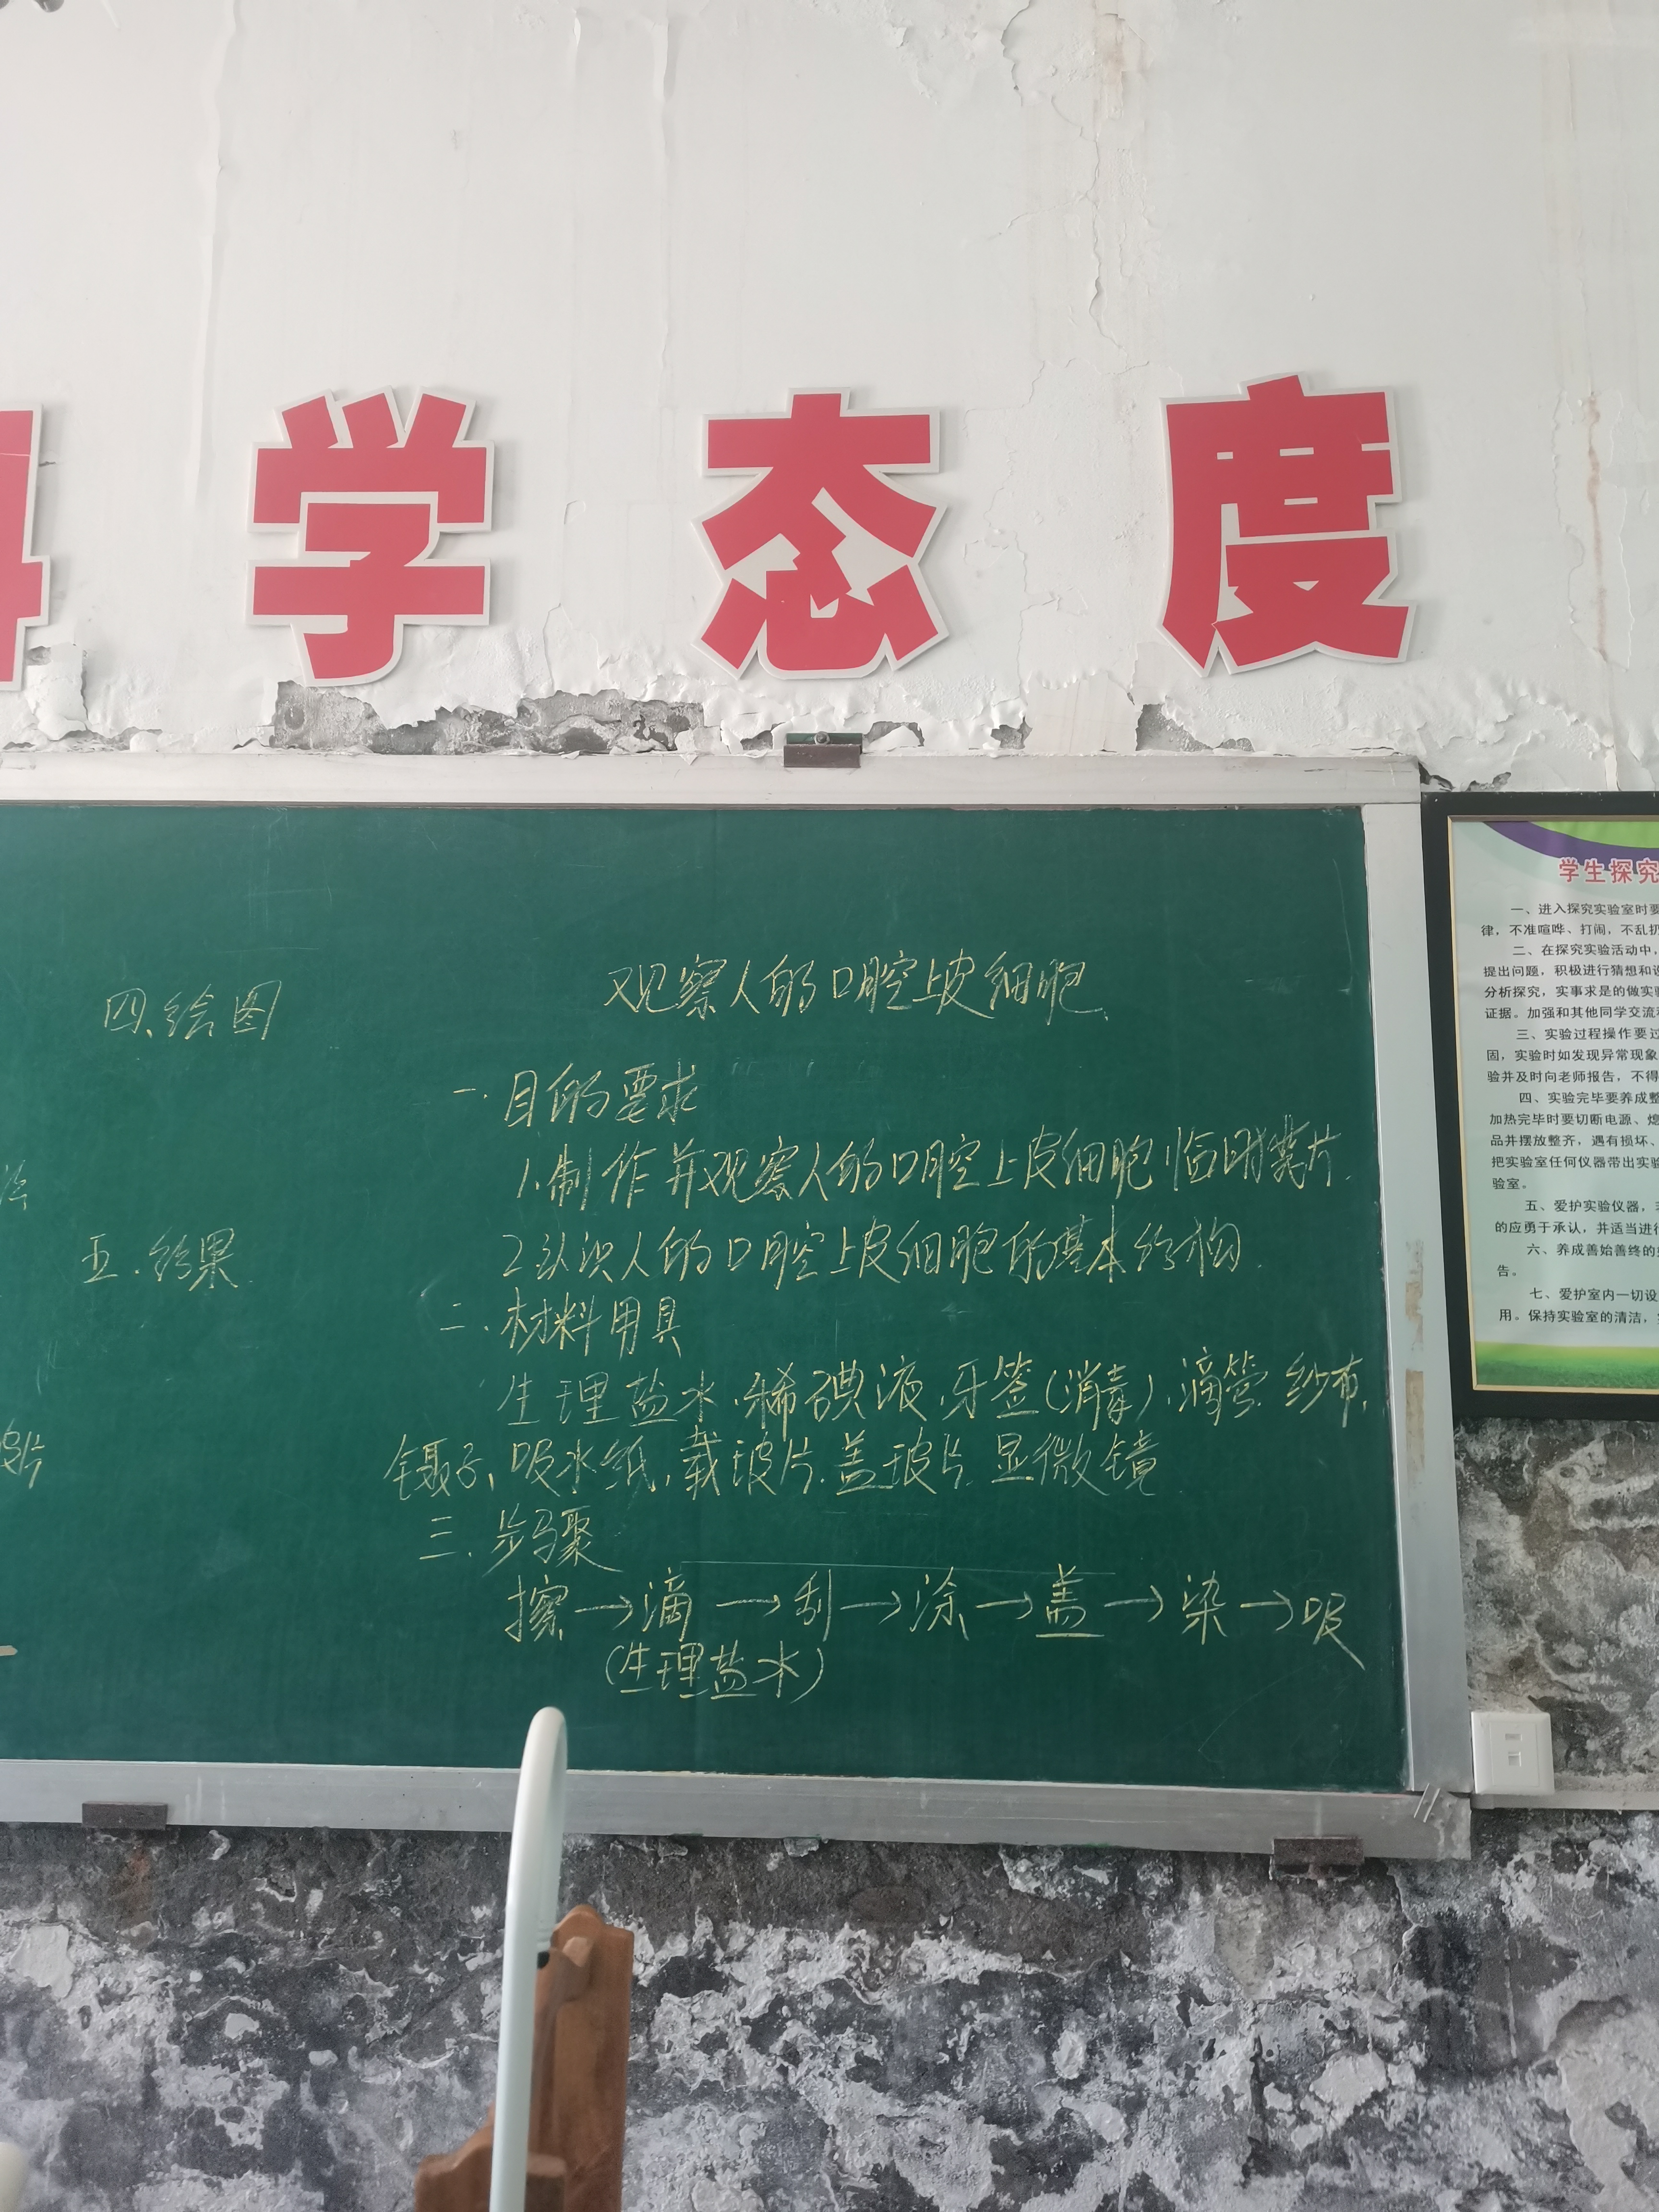 学态度
四、绘图
五.结果
观察人的口腔上皮细胞
一.目的要求
1.制作并观察人的口腔上皮细胞临时装片.
2.认识人的口腔上皮细胞的基本结构.
二.材料用具
生理盐水.稀碘液.牙签(消毒).滴管.纱布,
镊子,吸水纸,载玻片.盖玻片.显微镜
三.步骤
擦→滴→刮→涂→盖→染→吸
(生理盐水)
学生探究
一、进入探究实验室时要
律,不准喧哗、打闹,不乱扔
二、在探究实验活动中,
提出问题,积极进行猜想和设
分析探究,实事求是的做实验
证据。加强和其他同学交流
三、实验过程操作要
固,实验时如发现异常现象
验并及时向老师报告,不得
四、实验完毕要养成整
加热完毕时要切断电源、熄
品并摆放整齐,遇有损坏、
把实验室任何仪器带出实验
验室。
五、爱护实验仪器,
的应勇于承认,并适当进行
六、养成善始善终的
告。
七、爱护室内一切设
用。保持实验室的清洁,